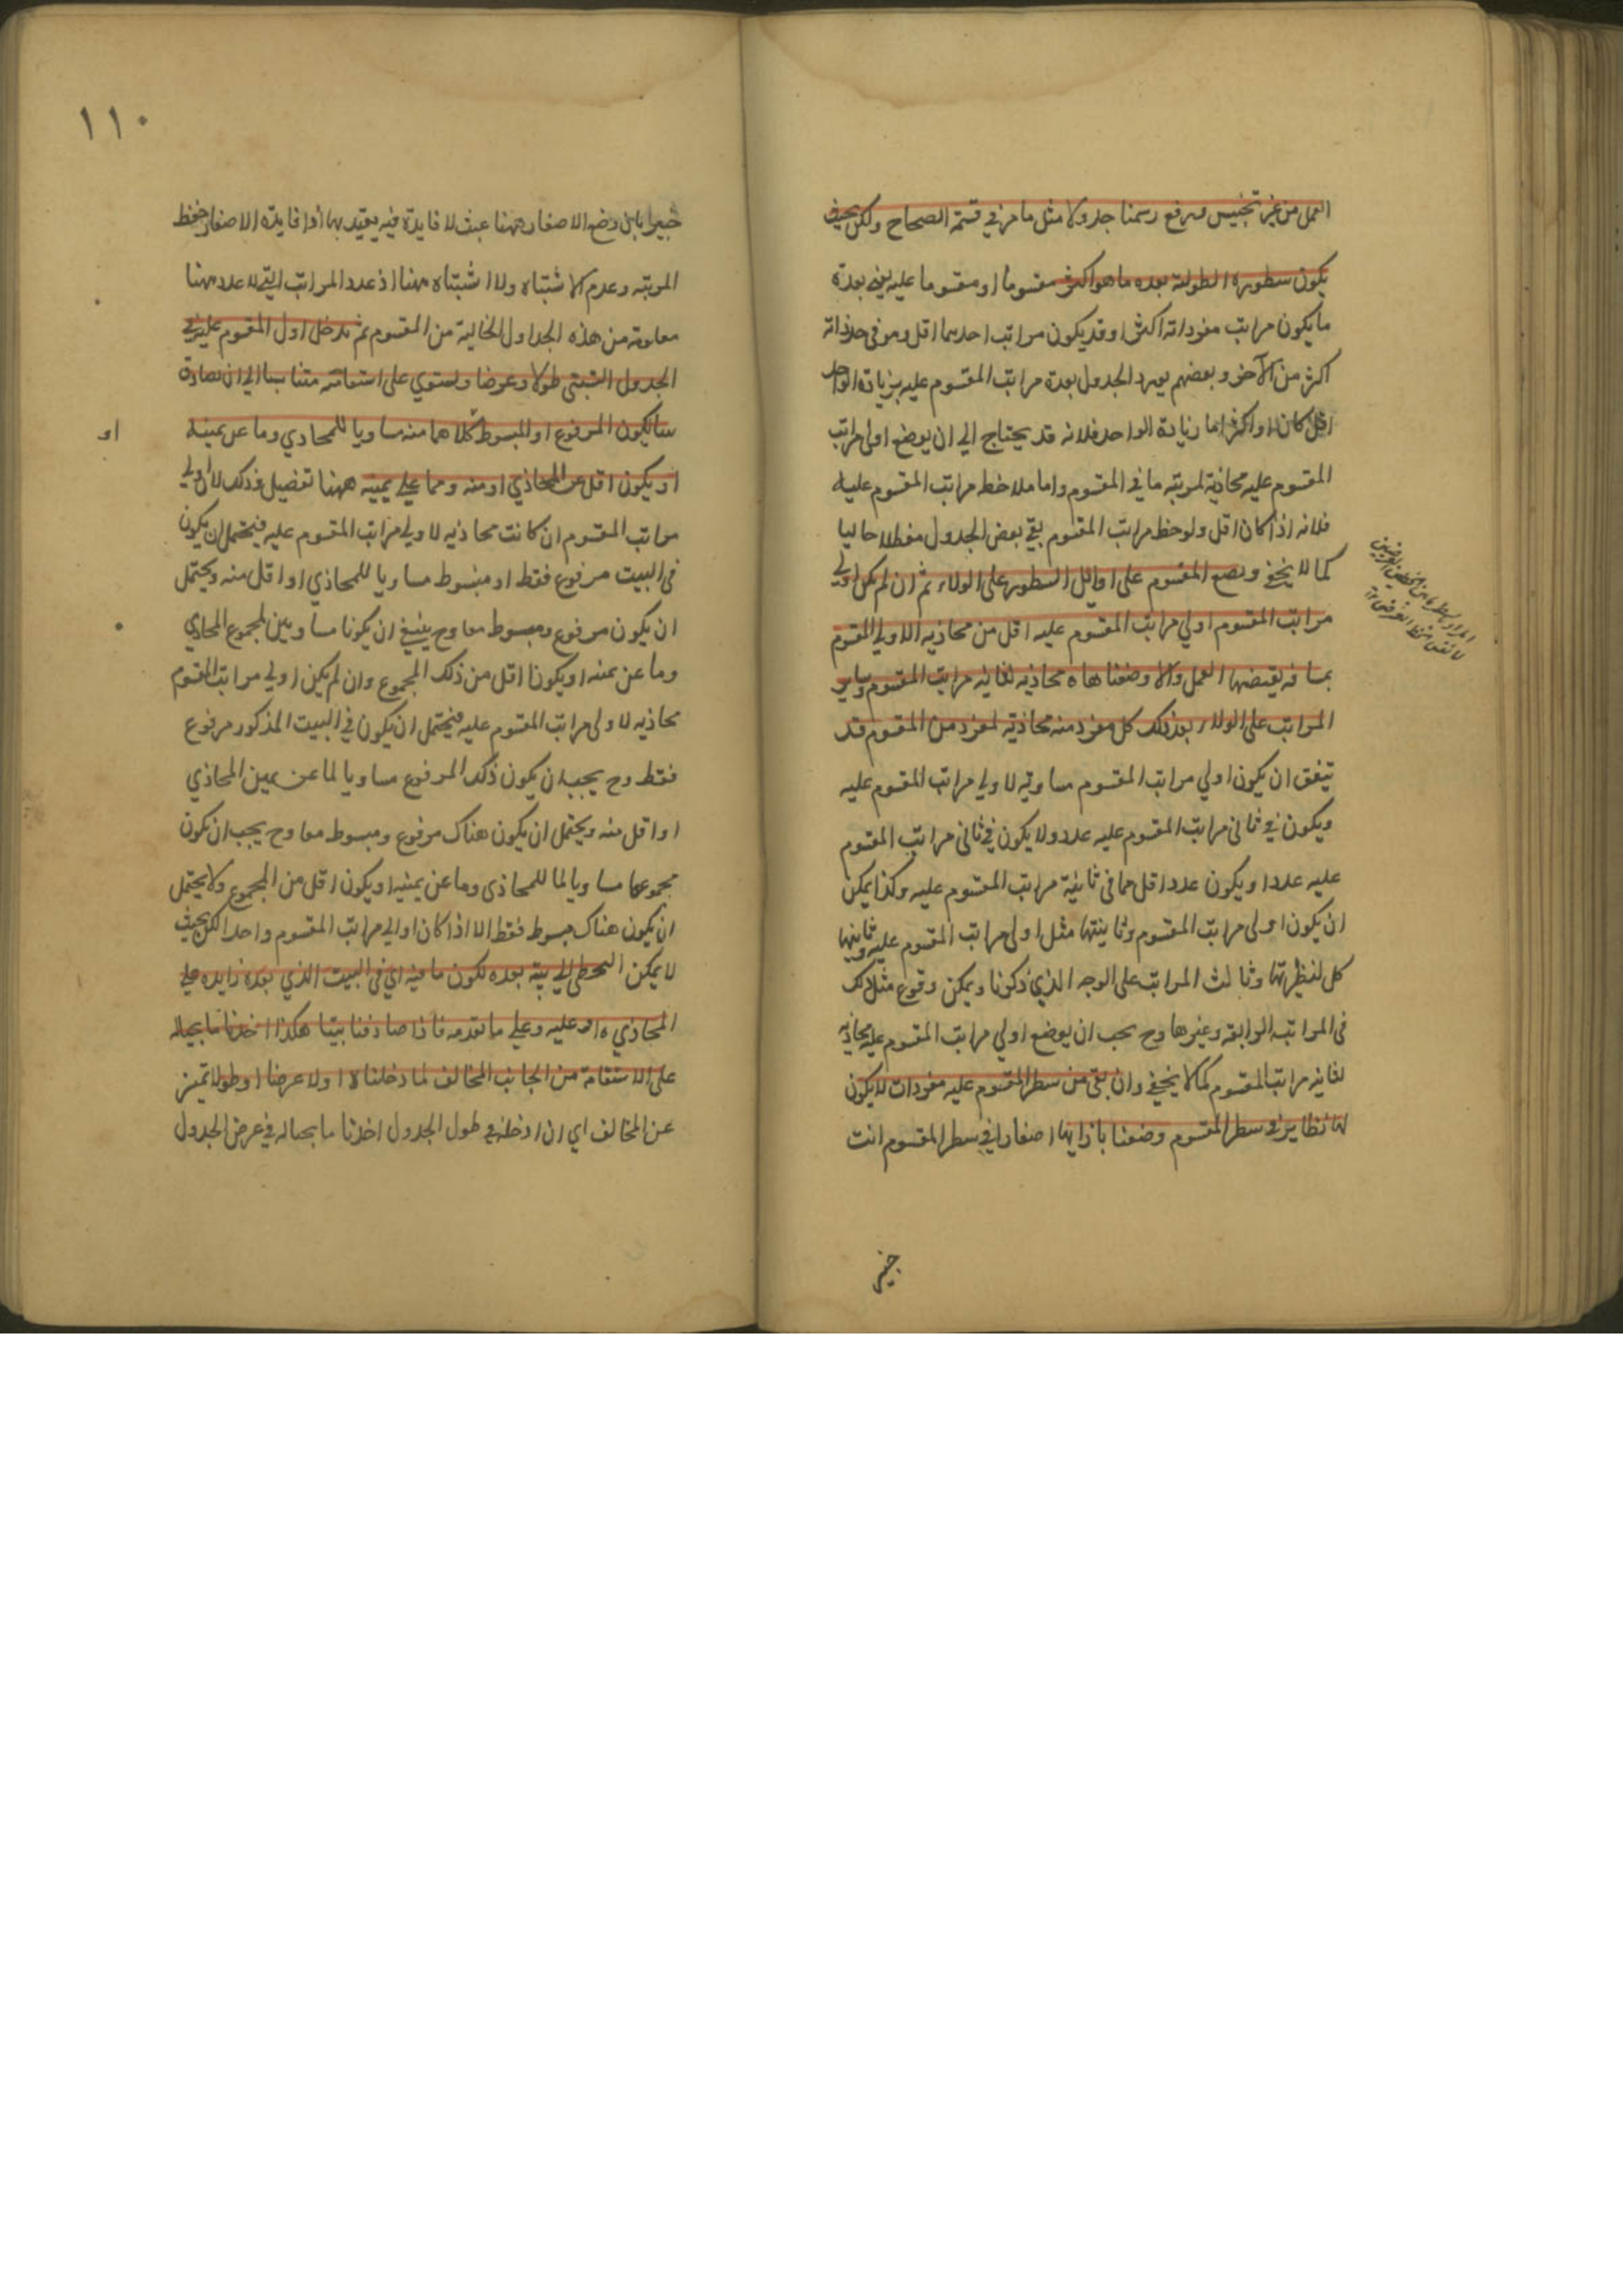 العمل من غير تجنيس ورفع رسمنا جدولا مثل ما مر في قسمة الصحاح ولكن بحيث
يكون سطوره الطولية بعده ما هو اكثر مقسوما او مقسوما عليه يعني بعدة
ما يكون مراتب مفرداته اكثر وقد يكون مراتب احدهما اقل وهو في حد ذاته
اكثر من الآخر وبعضهم يورد الجدول بعدة مراتب المقسوم عليه بزيادة الواحد
اقل كان او اكثر اما زيادة الواحد فلانه قد يحتاج الي ان يوضع اولى مراتب
المقسوم عليه محاذية لمرتبة ما في المقسوم واما ملاحظه مراتب المقسوم عليه
فلانه اذا كان اقل ولوحظ مراتب المقسوم بقي بعض الجدول معطلا خاليا
كما لا يخفي ونضع المقسوم على اوائل السطور على الولاء ثم ان لم يكن اولي
مراتب المقسوم اولي مراتب المقسوم عليه اقل من محاذيه الاولي المقسوم
بمسافه يقتضيها العمل والا وضعناها محاذيه لثانيه مراتب المقسوم وساير
المراتب على الولاء بعد ذلك كل مفرد منه محاذية لمفرد من المقسوم قد
يتفق ان يكون اولي مراتب المقسوم مساوية لاولي مراتب المقسوم عليه
ويكون في ثاني مراتب المقسوم عليه عدد ولا يكون في ثاني مراتب المقسوم
عليه عدد او يكون عدد اقل مما في ثانية مراتب المقسوم عليه وكذا يمكن
ان يكون اولى مراتب المقسوم وثانيتها مثل اولى مراتب المقسوم عليه وثانيتها
كل لنظيرتها وثالث المراتب على الوجه الذي ذكرنا ويمكن وقوع مثل ذلك
في المراتب الرابعة وغيرها وح يجب ان يوضع اولي مراتب المقسوم عليه محاذيه
لثانيه مراتب المقسوم كما لا يخفي وان بقى من سطر المقسوم عليه مفردات لا يكون
لها نظاير في سطر المقسوم وضعنا بازايها اصفارا في سطر المقسوم انت
خبير
١١٠
خبيرا بان وضع الاصفار ههنا عبث لا فايدة فيه يعتد بها اذا فايدة الاصفار حفظ
المرتبه وعدم الاشتباه ولا اشتباه ههنا اذ عدد المراتب التي لا عدد ههنا
معلومة من هذه الجداول الخالية من المقسوم ثم ندخل اول المقسوم عليه في
الجدول الستيني طولا وعرضا ونستوي على استقامته متناسبا الي ان نصادف
بيتا يكون المرفوع او المبسوط كلاهما منه مساويا للمحاذي وما عن يمينه
او
او يكون اقل من المحاذي او منه ومما علي يمينه ههنا تفصيل وذلك لان اولي
مراتب المقسوم ان كانت محاذيه لاولي مراتب المقسوم عليه فيحتمل ان يكون
في البيت مرفوع فقط او مبسوط مساويا للمحاذي او اقل منه ويحتمل
ان يكون مرفوع ومبسوط معا وح ينبغي ان يكونا مساويين لمجموع المحاذي
وما عن يمنه او يكونا اقل من ذلك المجموع وان لم يكن اولي مراتب المقسوم
محاذيه لاولى مراتب المقسوم عليه فيحتمل ان يكون في البيت المذكور مرفوع
فقط وح يجب ان يكون ذلك المرفوع مساويا لما عن يمين المحاذي
او اقل منه ويحتمل ان يكون هناك مرفوع ومبسوط معا وح يجب ان يكون
مجموعها مساويا لما للمحاذى وما عن يمينه او يكون اقل من المجموع ولا يحتمل
ان يكون هناك مبسوط فقط الا اذا كان اولي مراتب المقسوم واحدا لكن بحيث
لا يمكن التخطي الي بيت بعده لكون ما فيه اي في البيت الذي بعده زايده علي
المحاذي او عليه وعلي ما تقدمه فاذا صادفنا بيتا هكذا اخذنا ما بحياله
على الاستقامة من الجانب المخالف لما دخلناه اولا عرضا او طولا تميز
عن المخالف اي ان ادخلنه في طول الجدول اخذنا ما بحياله في عرض الجدول